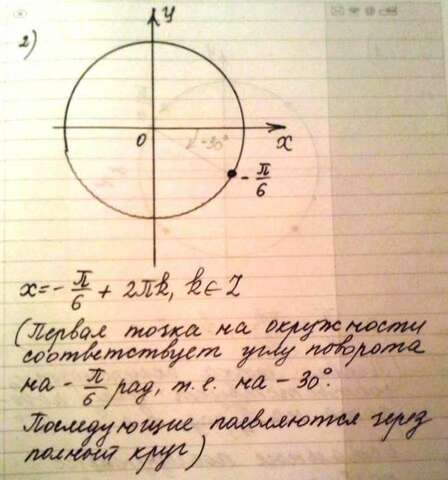 2)
У
0
-30°
х
- π/6
x = - π/6 + 2πk, k ∈ Z
(Первая точка на окружности
соответствует углу поворота
на - π/6 рад, т.е. на - 30°.
Последующие появляются через
полный круг)